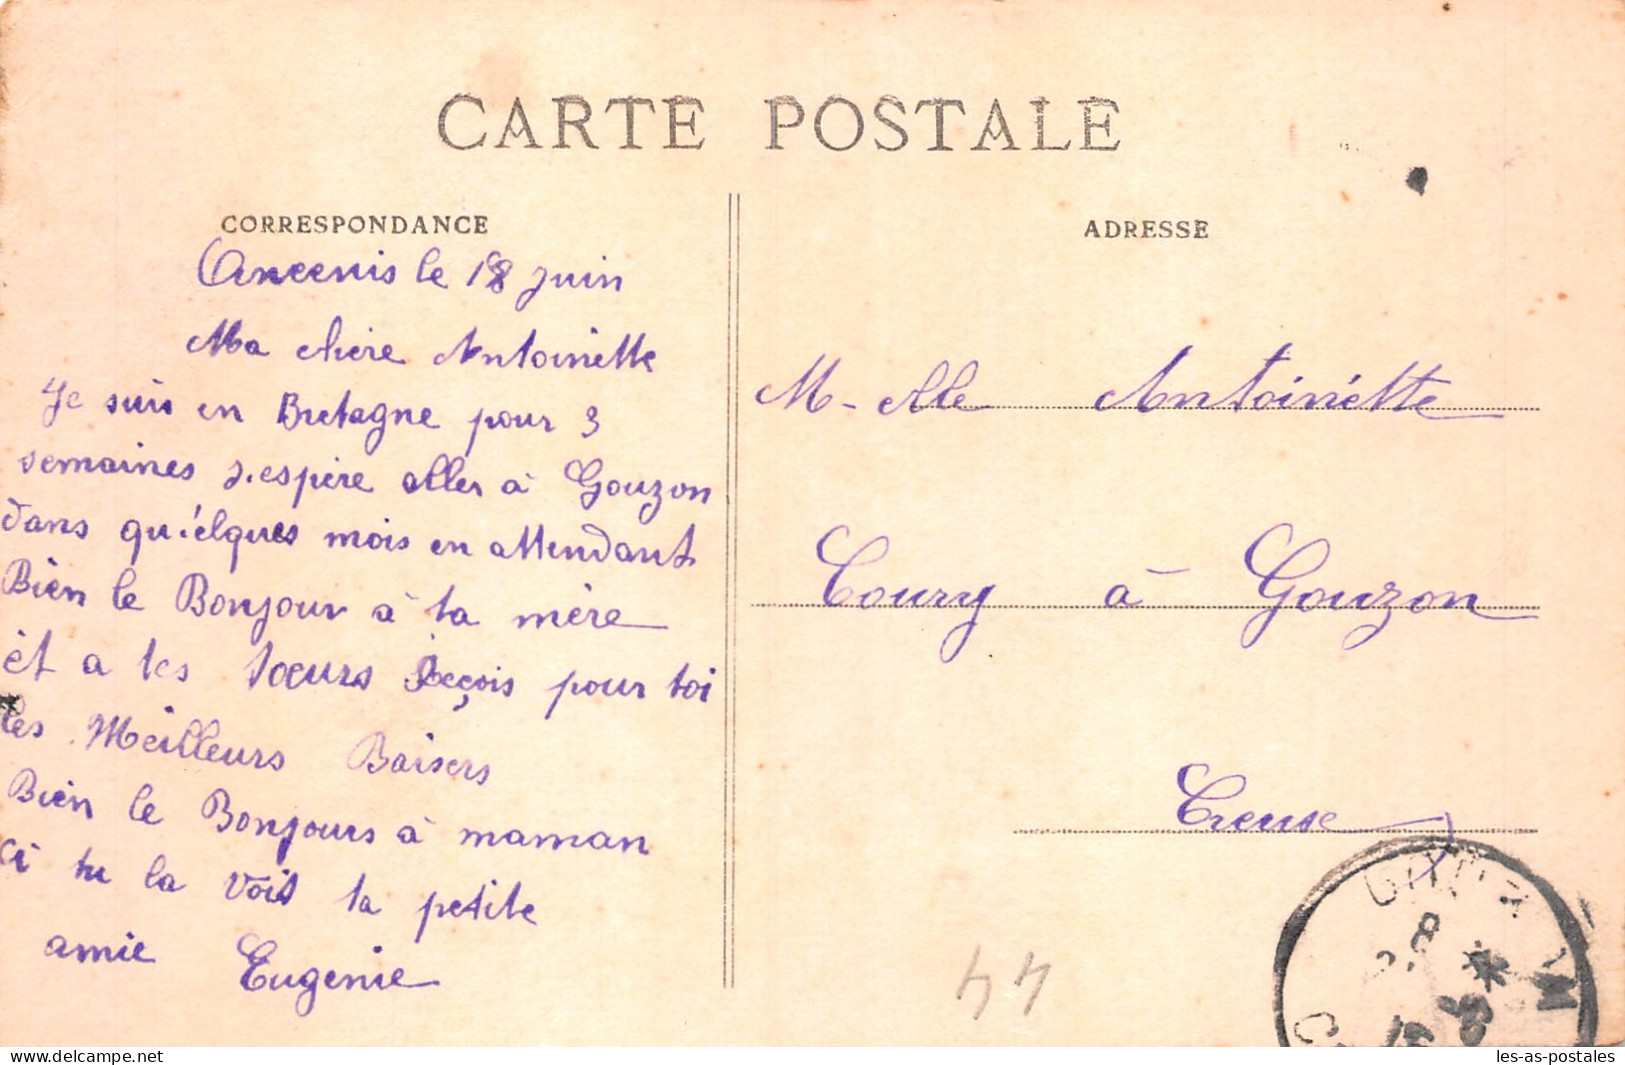 CARTE POSTALE
CORRESPONDANCE
Ancenis le 18 juin
Ma chère Antoinette
Je suis en Bretagne pour 3
semaines j.espère aller à Gouzon
dans qu'élques mois en attendant
Bien le Bonjour à ta mère
et a tes sœurs Reçois pour toi
les Meilleurs Baisers
Bien le Bonjours à maman
ci tu la vois ta petite
amie Eugenie
ADRESSE
M-elle Antoinétte
Coury à Gouzon
Creuse
44
delcampe.net
les-as-postales